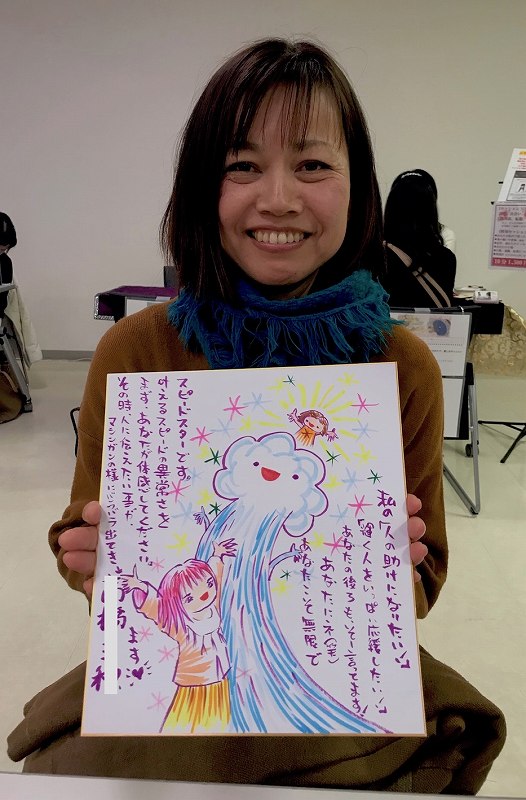 私の「人の助けになりたい!」
「輝く人をいっぱい応援したい!」
あなたの後ろも、そー言ってます!
あなたにネ(笑)
あなたこそ無限で
スピードスターです。
叶えるスピードの異常さを
まず、あなたが体感してください。
その時、人に伝えたい事が、
マシンガンの様にバラバラ出てき
ます♡